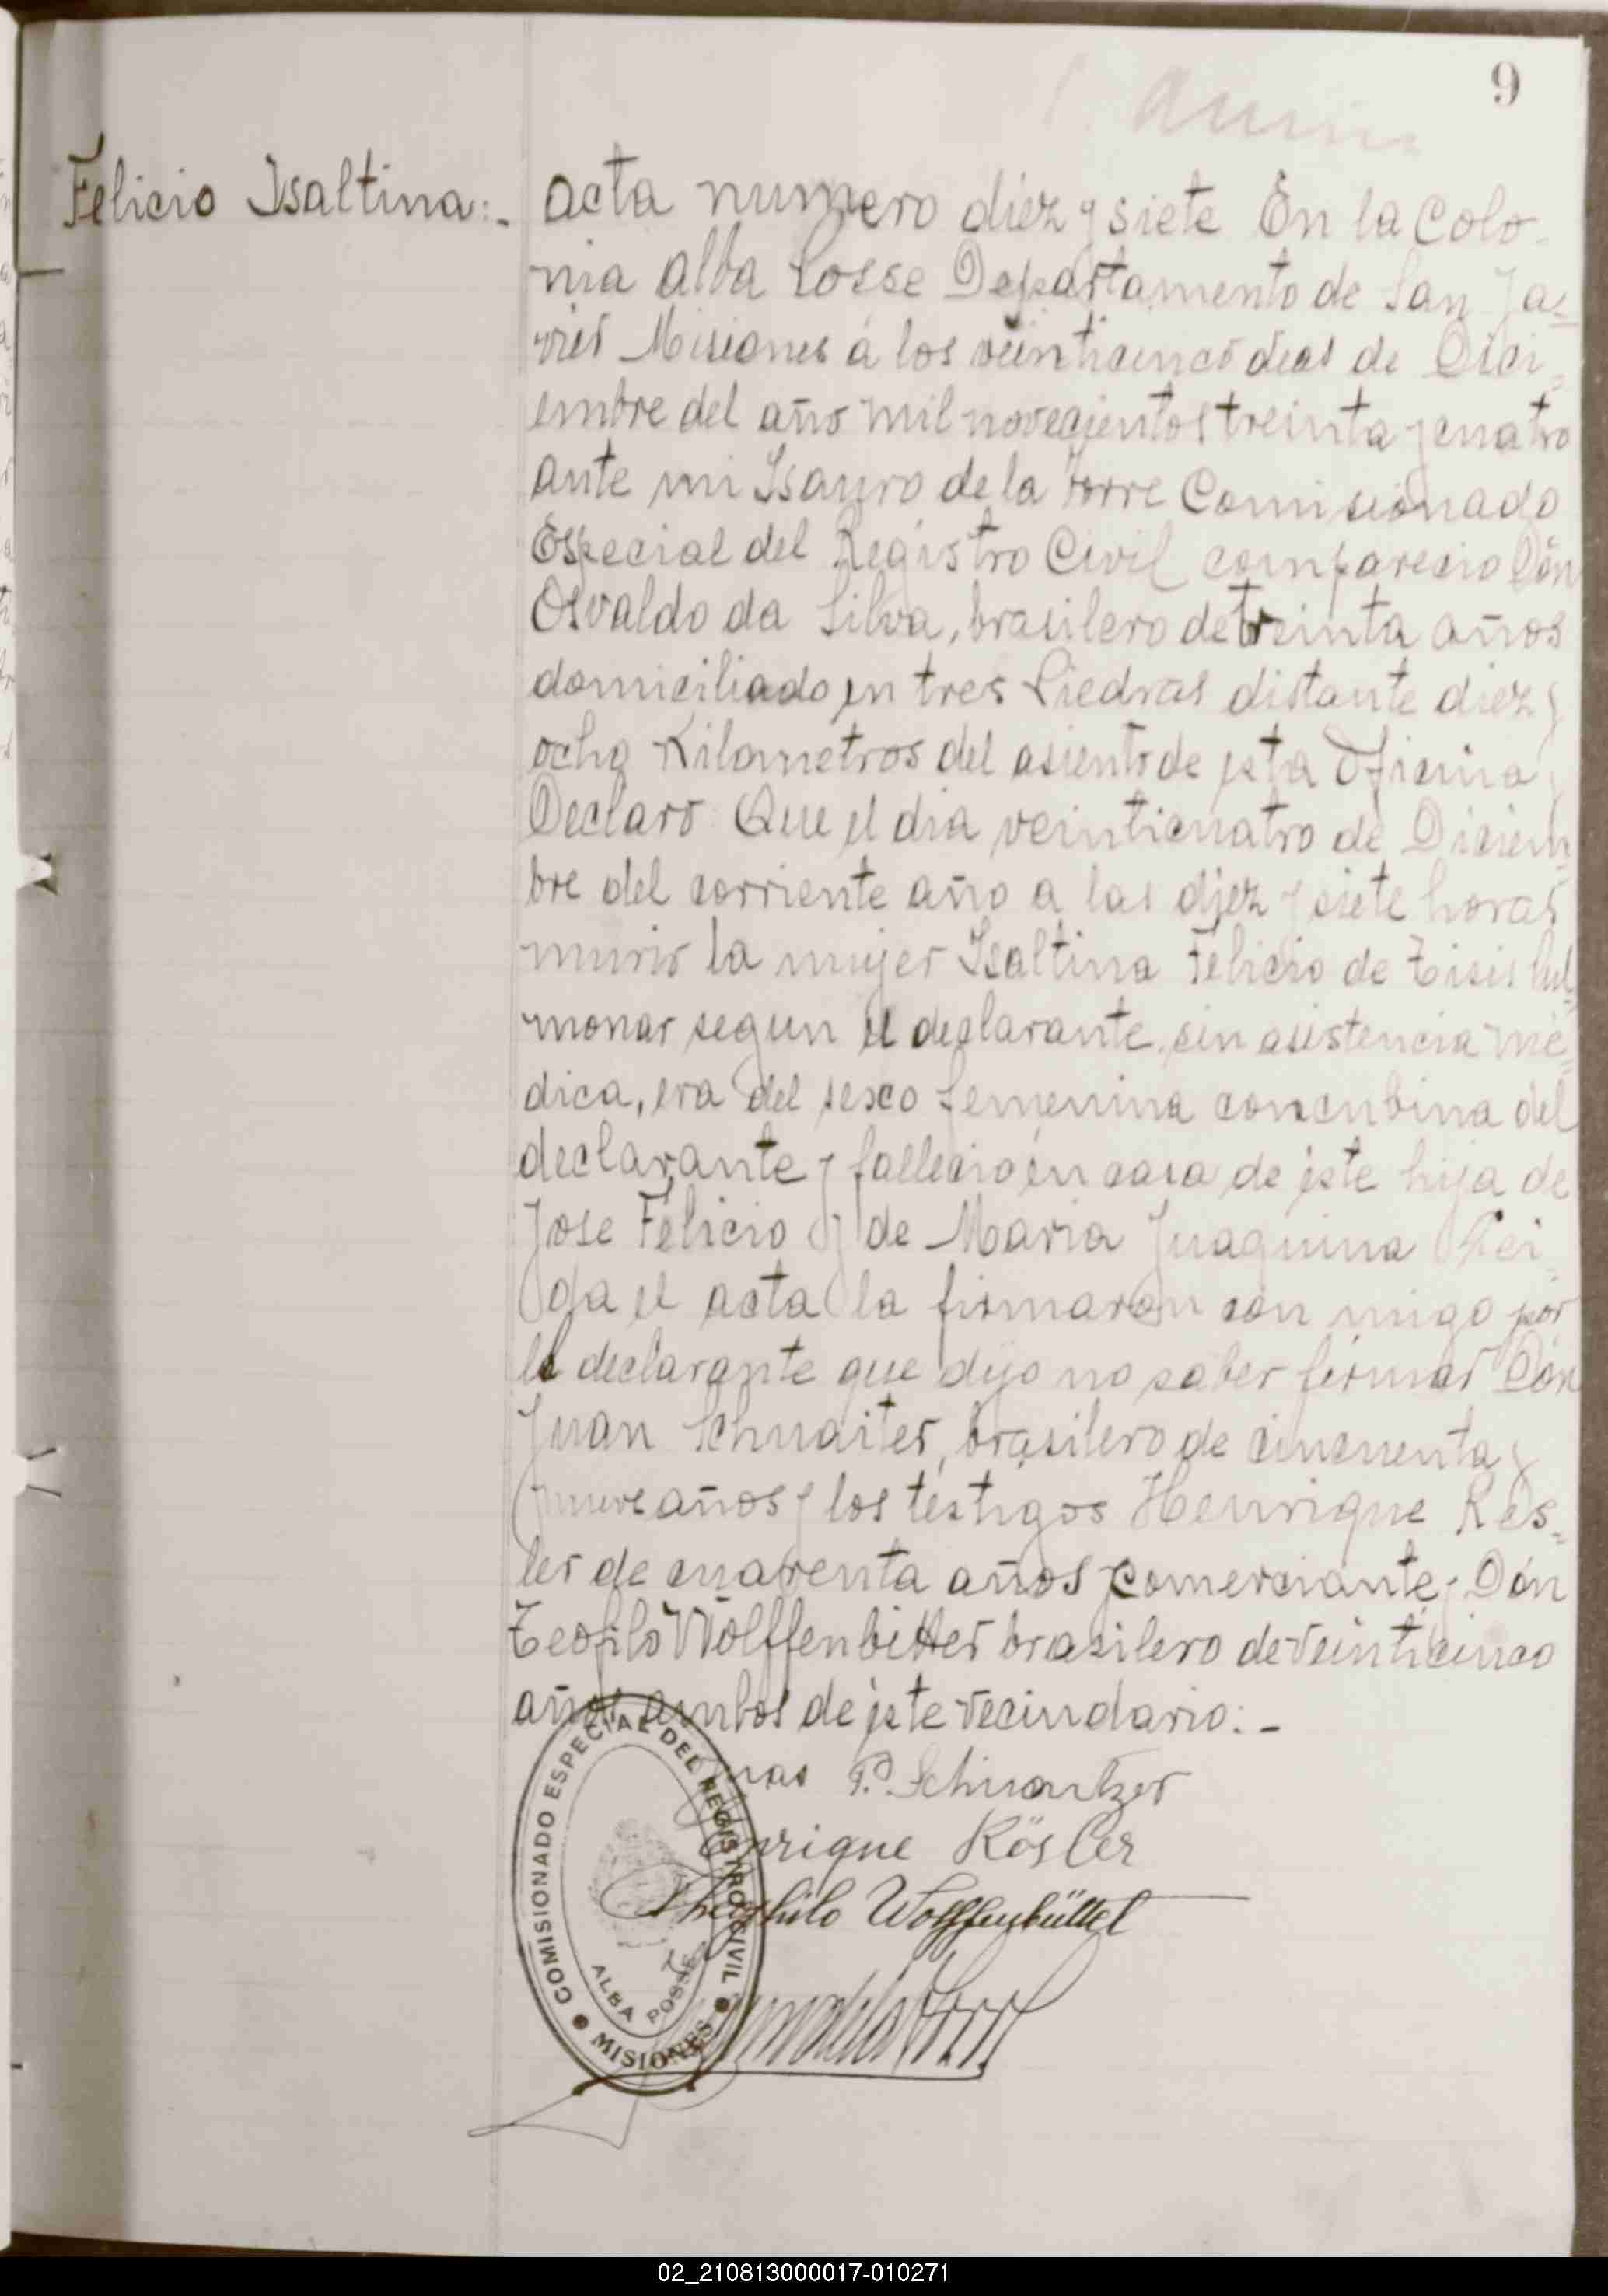 9
Felicio Isaltina:-
acta numero diez y siete En la Colo-
nia Alba Posse Departamento de San Ja-
vier Misiones á los veinticinco dias de Dici-
embre del año mil novecientos treinta y cuatro
ante mi Isauro de la Torre Comisionado
Especial del Registro Civil comparecio Dón
Osvaldo da Silva, brasilero de treinta años
domiciliado en tres Piedras distante diez y
ocho Kilometros del asiento de esta Oficina y
Declaro: Que el dia veinticuatro de Diciem-
bre del corriente año a las diez y siete horas
murio la mujer Isaltina Felicio de Tisis Pul-
monar segun el declarante, sin asistencia mé-
dica, era del sexo femenina concubina del
declarante y fallecio en casa de éste hija de
Jose Felicio y de Maria Juaquina Lei-
da el acta la firmaron con migo por
el declarante que dijo no saber firmar Dón
Juan Schuaiter, brasilero de cincuenta y
nueve años y los testigos Henrique Res-
ler de cuarenta años comerciante y Dón
Teofilo Wolffenbitter brasilero de veinticinco
años ambos de éste vecindario:-
P. Schwantzer
Enrique Kösler
Theophilo Wolffenbüttel
COMISIONADO ESPECIAL DEL REGISTRO CIVIL
ALBA POSSE
MISIONES
02_210813000017-010271